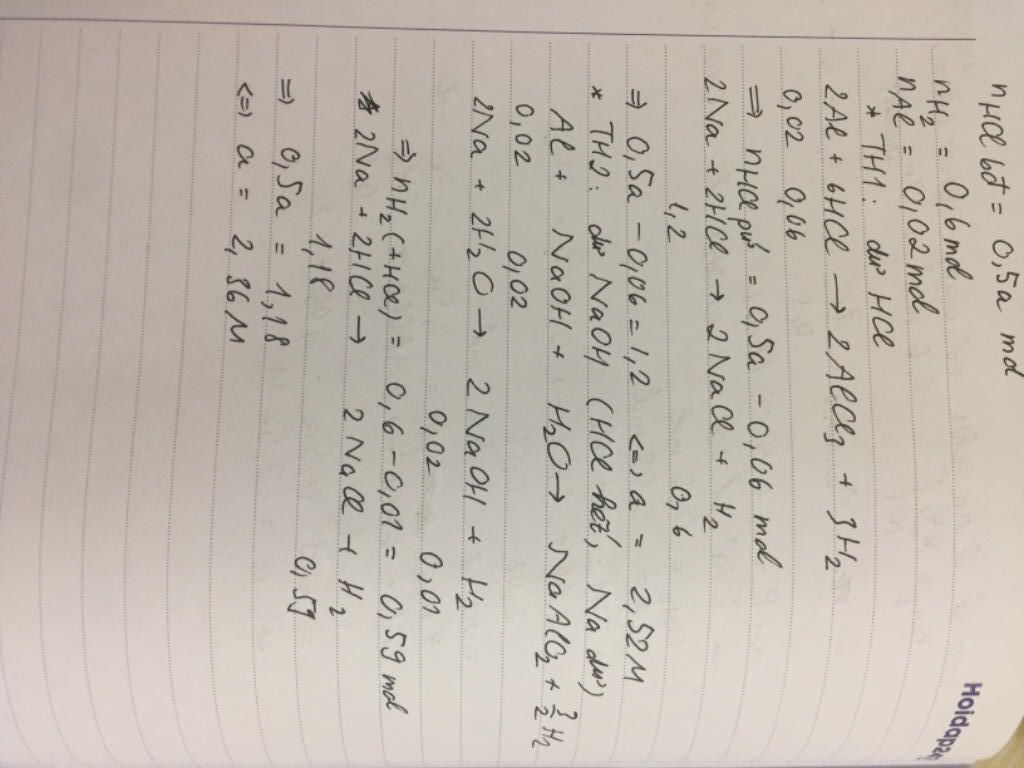 nHCl bđ = 0,5a mol
nH2 = 0,6 mol
nAl = 0,02 mol
* TH1: dư HCl
2Al + 6HCl → 2AlCl3 + 3H2
0,02 0,06
⇒ nHCl pứ = 0,5a - 0,06 mol
2Na + 2HCl → 2NaCl + H2
1,2 0,6
⇒ 0,5a - 0,06 = 1,2 <=> a = 2,52M
* TH2: dư NaOH (HCl hết, Na dư)
Al + NaOH + H2O → NaAlO2 + 3/2 H2
0,02 0,02
2Na + 2H2O → 2NaOH + H2
0,02 0,01
⇒ nH2 (+HCl) = 0,6 - 0,01 = 0,59 mol
* 2Na + 2HCl → 2NaCl + H2
1,18 0,59
⇒ 0,5a = 1,18
<=> a = 2,36M
Holdapeņ